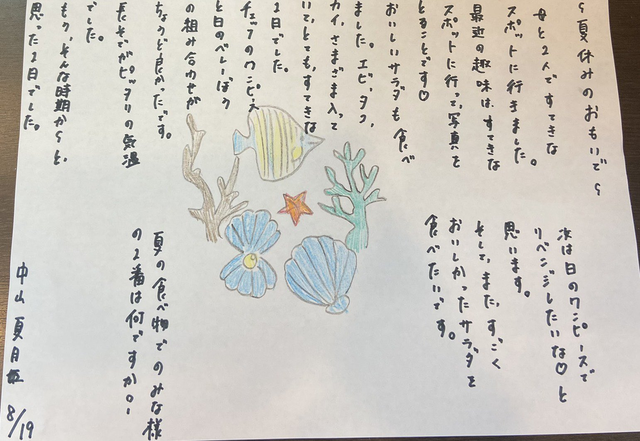 〜夏休みのおもいで〜
母と2人ですてきな
スポットに行きました。
最近の趣味は、すてきな
スポットに行って、写真を
とることです♡
おいしいサラダも食べ
ました。エビ、タコ、
カイ、さまざま入って
いて、とても、すてきな
1日でした。
チェックのワンピース
と白のベレーぼう
の組み合わせが
ちょうど良かったです。
長そでがピッタリの気温
でした。
もう、そんな時期か〜と、
思った1日でした。
次は白のワンピースで
リベンジしたいな♡と
思います。
そして、また、すごく
おいしかったサラダを
食べたいです。
夏の食べ物でのみな様
の1番は何ですか〜
中山 夏月姫 8/19